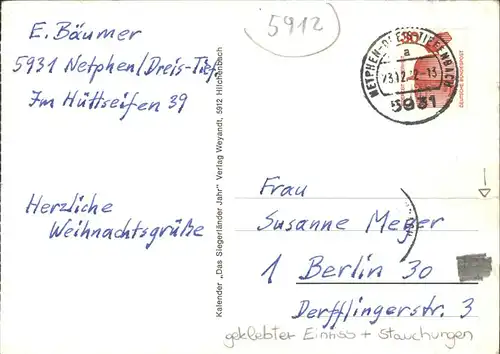 5912
E. Bäumer
5931 Netphen/Dreis-Tief
Im Hüttseifen 39
Herzliche
Weihnachtsgrüße
Kalender „Das Siegerländer Jahr" Verlag Weyandt, 5912 Hilchenbach
NETPHEN-DREIS-TIEFENBACH
a
23.12.-13
5931
DEUTSCHE BUNDESPOST
Frau
Susanne Meyer
1 Berlin 30
Derfflingerstr. 3
geklebter Einriss + Stauchungen